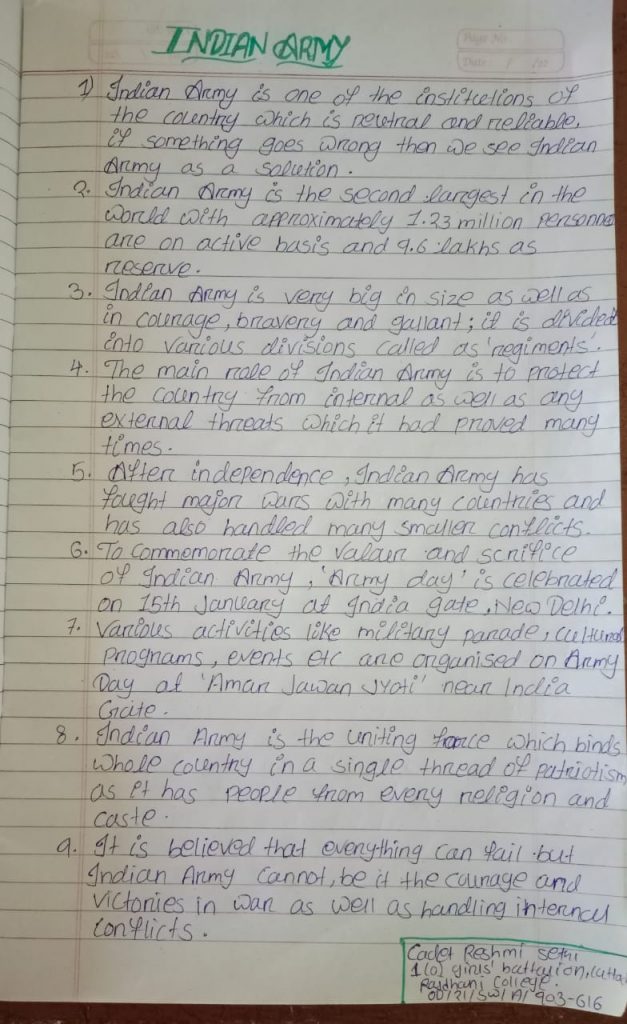 Page No.
Date: / /20
INDIAN ARMY
1) Indian Army is one of the institutions of
the country which is neutral and reliable,
if something goes wrong then we see Indian
Army as a solution.
2. Indian Army is the second largest in the
world with approximately 1.23 million personnel
are on active basis and 9.6 lakhs as
reserve.
3. Indian Army is very big in size as well as
in courage, bravery and gallant; it is divided
into various divisions called as 'regiments'.
4. The main role of Indian Army is to protect
the country from internal as well as any
external threats which it had proved many
times.
5. After independence, Indian Army has
fought major wars with many countries and
has also handled many smaller conflicts.
6. To commemorate the valaur and scrifice
of Indian Army, 'Army day' is celebrated
on 15th January at India gate, New Delhi.
7. Various activities like military parade, cultural
programs, events etc are organised on Army
Day at 'Amar Jawan Jyoti' near India
Gate.
8. Indian Army is the uniting force which binds
whole country in a single thread of patriotism
as it has people from every religion and
caste.
9. It is believed that everything can fail but
Indian Army cannot, be it the courage and
victories in war as well as handling internal
conflicts.
Cadet Reshmi Sethi
1(O) girls' battalion,
Rajdhani College.
OD/21/SW/A/903-616